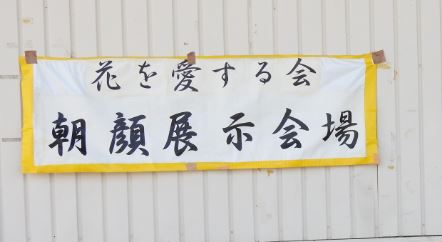 花を愛する会
朝顔展示会場